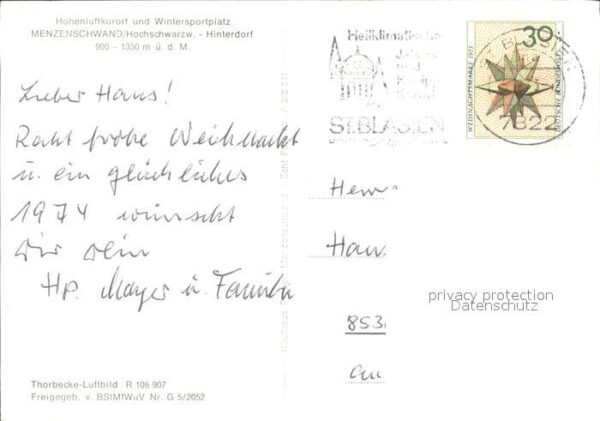 Höhenluftkurort und Wintersportplatz
MENZENSCHWAND/Hochschwarzw. - Hinterdorf
900 - 1350 m ü. d. M.
Lieber Hans!
Recht frohe Weihnacht
u. ein glückliches
1974 wünscht
Dir Dein
Hp. Mayer u. Familie
Thorbecke-Luftbild R 106 907
Freigegeb. v. BStMfWuV Nr. G 5/2052
Heilklimatischer
ST. BLASIEN
30
WEIHNACHTSMARKE 1973
DEUTSCHE BUNDESPOST
ST. BLASIEN
7822
Herrn
Han
853
An
privacy protection
Datenschutz